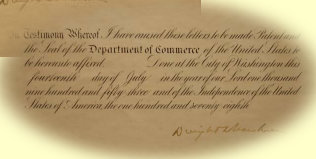 In Testimony Whereof, I have caused these letters to be made Patent and
the Seal of the Department of Commerce of the United States to
be hereunto affixed. Done at the City of Washington this
fourteenth day of July in the year of our Lord one thousand
nine hundred and fifty three and of the Independence of the United
States of America, the one hundred and seventy eighth.